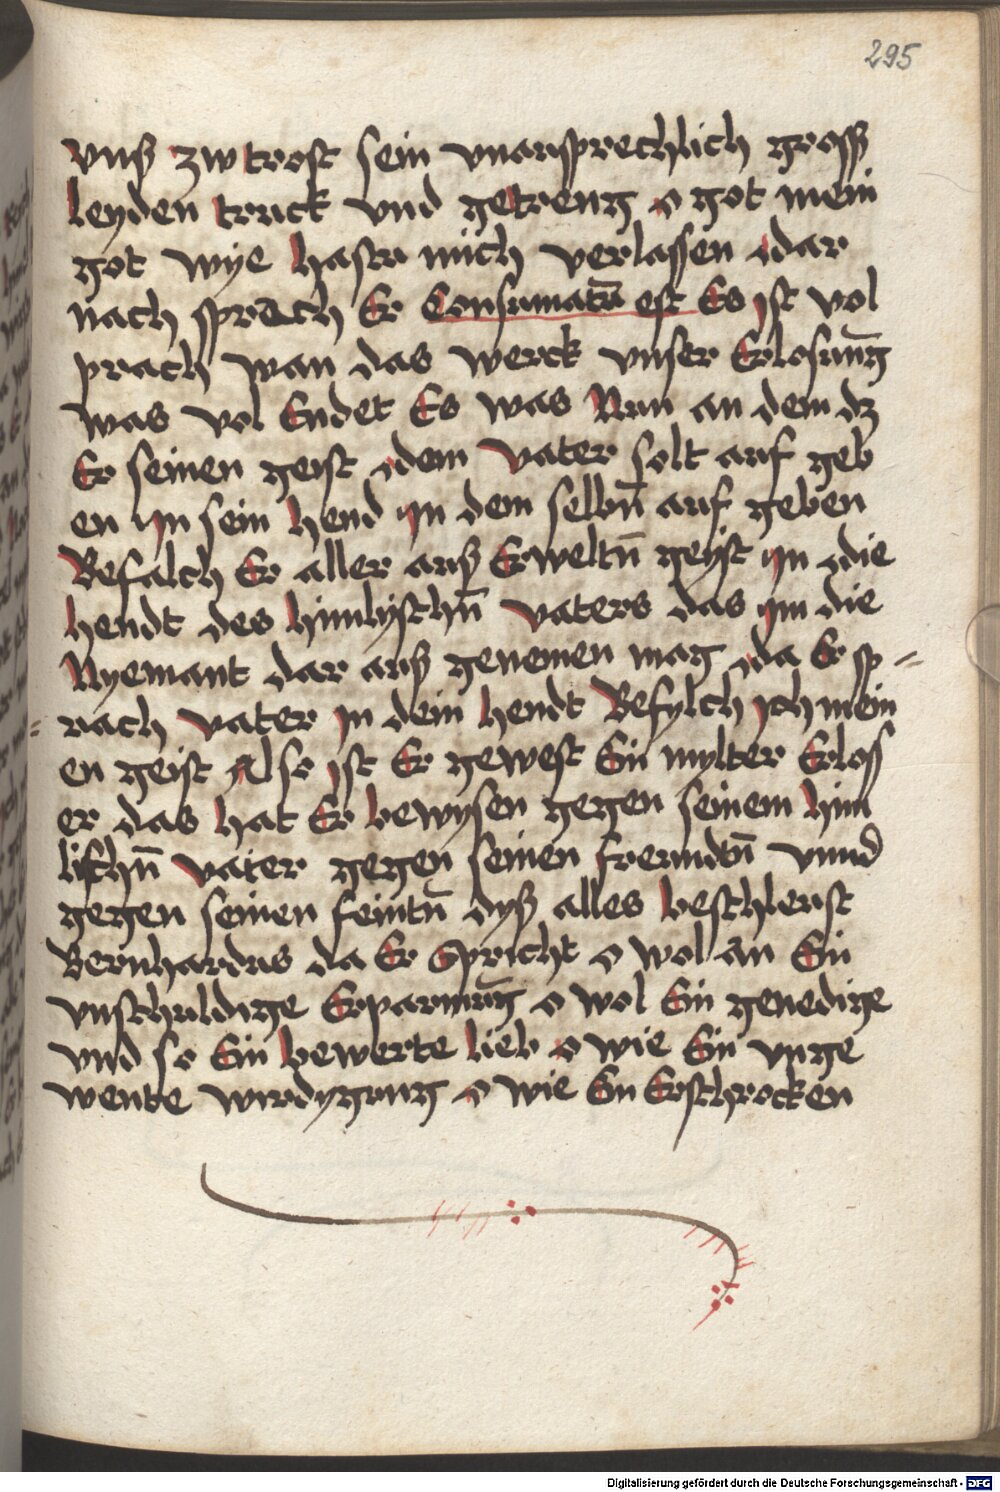 295
vnß zw trost sein vnausprechlich gross
leyden truck vnd getreng o got mein
got wye hastu mich verlassen dar
nach sprach Er Consumatū est Es jst vol
prach wan das werck vnser Erlosūng
was vol Endet Es was Nun an dem dz
Er seinen geist dem vater solt auf geb
en jn sein hend jn dem selbn̄ auf geben
Befalch Er aller auß Erweltn̄ geyst jn die
hendt des himlyschn̄ vaters das jm die
Nyemant dar auß genemen mag da Er sp=
rach vater jn dein hendt Befylch jch mein
en geist Also jst Er gewest Ein mylter Erloss
er das hat Er bewysen gegen seinem him
lischn̄ vater gegen seinen freundtn̄ vnnd
gegen seinen feintn̄ dyß alles beschleust
Bernhardus da Er Spricht o wol an Ein
vnschuldige Erparmūng o wol Ein genedige
vnd so Ein bewerte lieb o wie Ein vnge
wente wirdygung o wie Ein Erschrocken
Digitalisierung gefördert durch die Deutsche Forschungsgemeinschaft - DFG